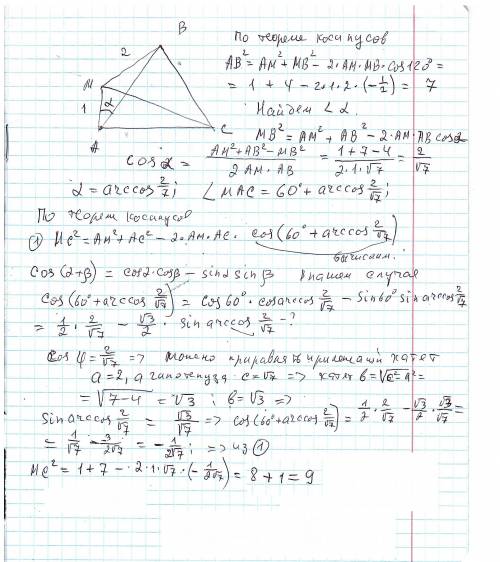 B
2
M
1
α
A
C
По теореме косинусов
AB² = AM² + MB² - 2·AM·MB·cos120° =
= 1 + 4 - 2·1·2·(-1/2) = 7
Найдем ∠α.
MB² = AM² + AB² - 2·AM·AB cosα
cosα = (AM² + AB² - MB²)/(2AM·AB) = (1+7-4)/(2·1·√7) = 2/√7
α = arccos 2/√7; ∠MAC = 60° + arccos 2/√7;
По теорем косинусов
① MC² = AM² + AC² - 2·AM·AC· cos(60° + arccos 2/√7)
вычислим.
cos(α+β) = cosα·cosβ - sinα sinβ В нашем случае
cos(60° + arccos 2/√7) = cos60°·cos arccos 2/√7 - sin60° sin arccos 2/√7
= 1/2 · 2/√7 - √3/2 · sin arccos 2/√7 - ?
cos φ = 2/√7 => можно приравять прилежащ катет
a = 2, а гипотенуза - c = √7 => катет b = √c²-a² =
= √7-4 = √3; b = √3 =>
sin arccos 2/√7 = √3/√7 => cos(60° + arccos 2/√7) = 1/2 · 2/√7 - √3/2 · √3/√7 =
= 1/√7 - 3/2√7 = - 1/2√7; => из ①
MC² = 1 + 7 - 2·1·√7·(-1/2√7) = 8 + 1 = 9